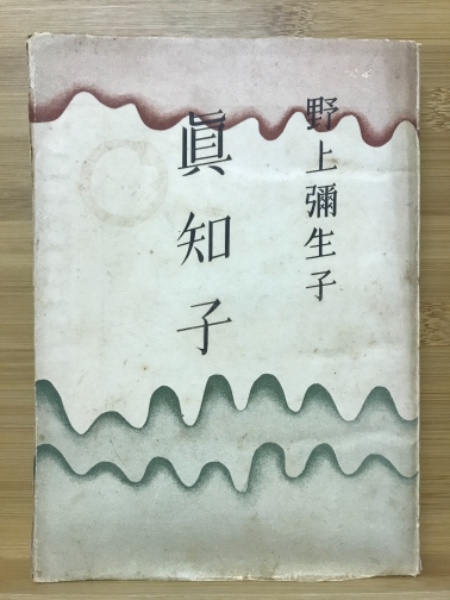 野上彌生子
眞知子